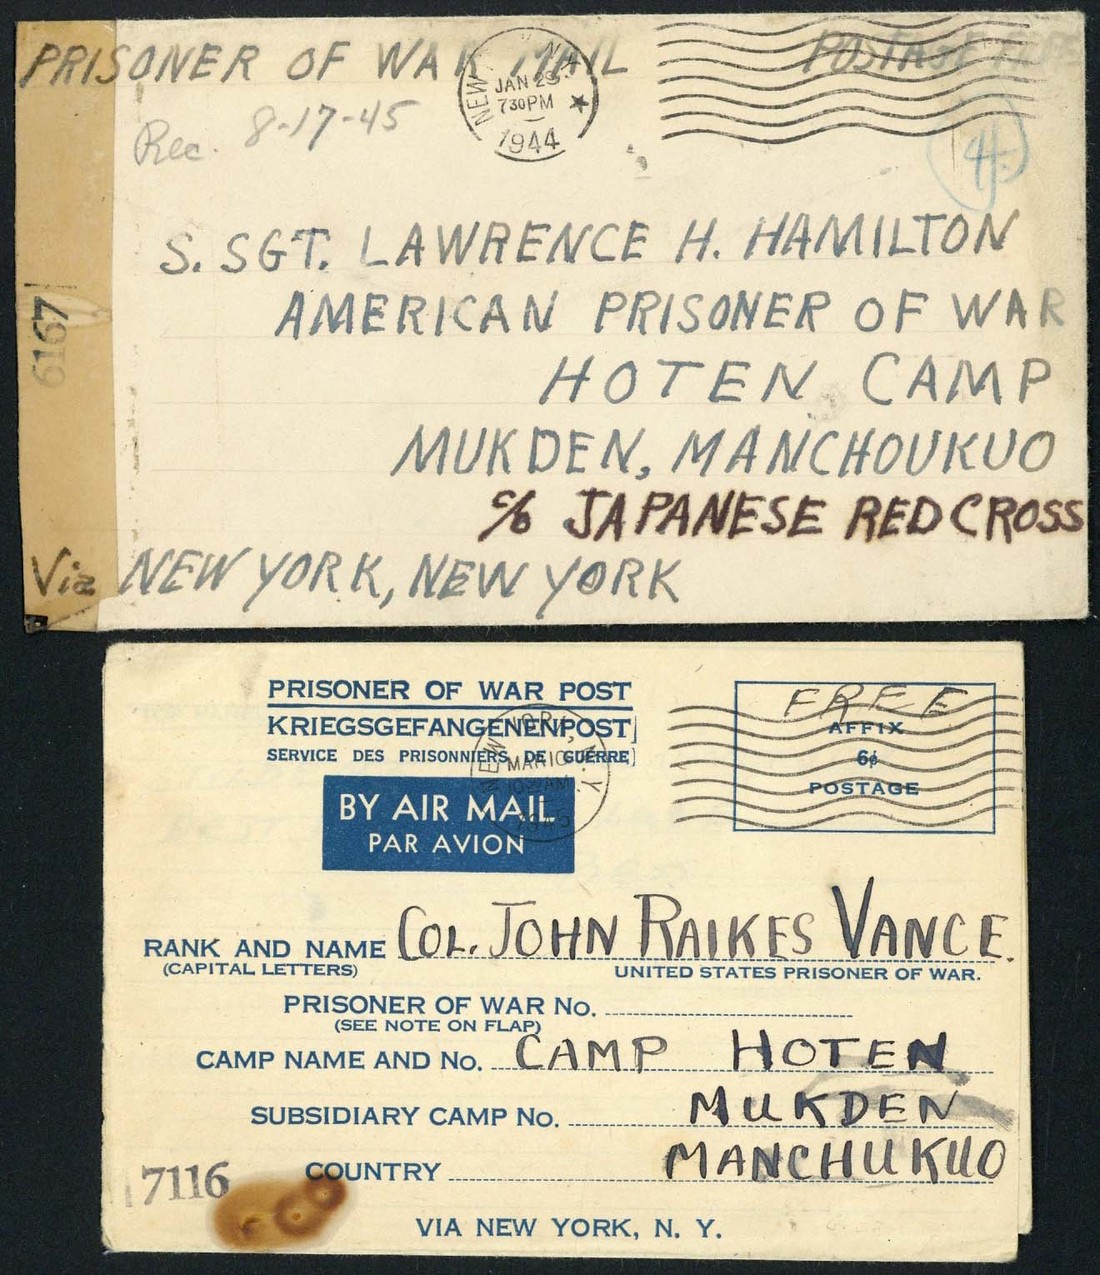 PRISONER OF WAR MAIL
POSTAGE FREE
NEW YORK N.Y.
JAN 29
730PM
1944
Rec. 8-17-45
4
S. SGT. LAWRENCE H. HAMILTON
AMERICAN PRISONER OF WAR
HOTEN CAMP
MUKDEN, MANCHOUKUO
c/o JAPANESE RED CROSS
Via NEW YORK, NEW YORK
6167
PRISONER OF WAR POST
KRIEGSGEFANGENENPOST
SERVICE DES PRISONNIERS DE GUERRE
BY AIR MAIL
PAR AVION
NEW YORK, N.Y.
MAR 10
AM
FREE
AFFIX
6¢
POSTAGE
RANK AND NAME COL. JOHN RAIKES VANCE.
(CAPITAL LETTERS) UNITED STATES PRISONER OF WAR.
PRISONER OF WAR No.
(SEE NOTE ON FLAP)
CAMP NAME AND No. CAMP HOTEN
SUBSIDIARY CAMP No. MUKDEN
COUNTRY MANCHUKUO
7116
VIA NEW YORK, N. Y.